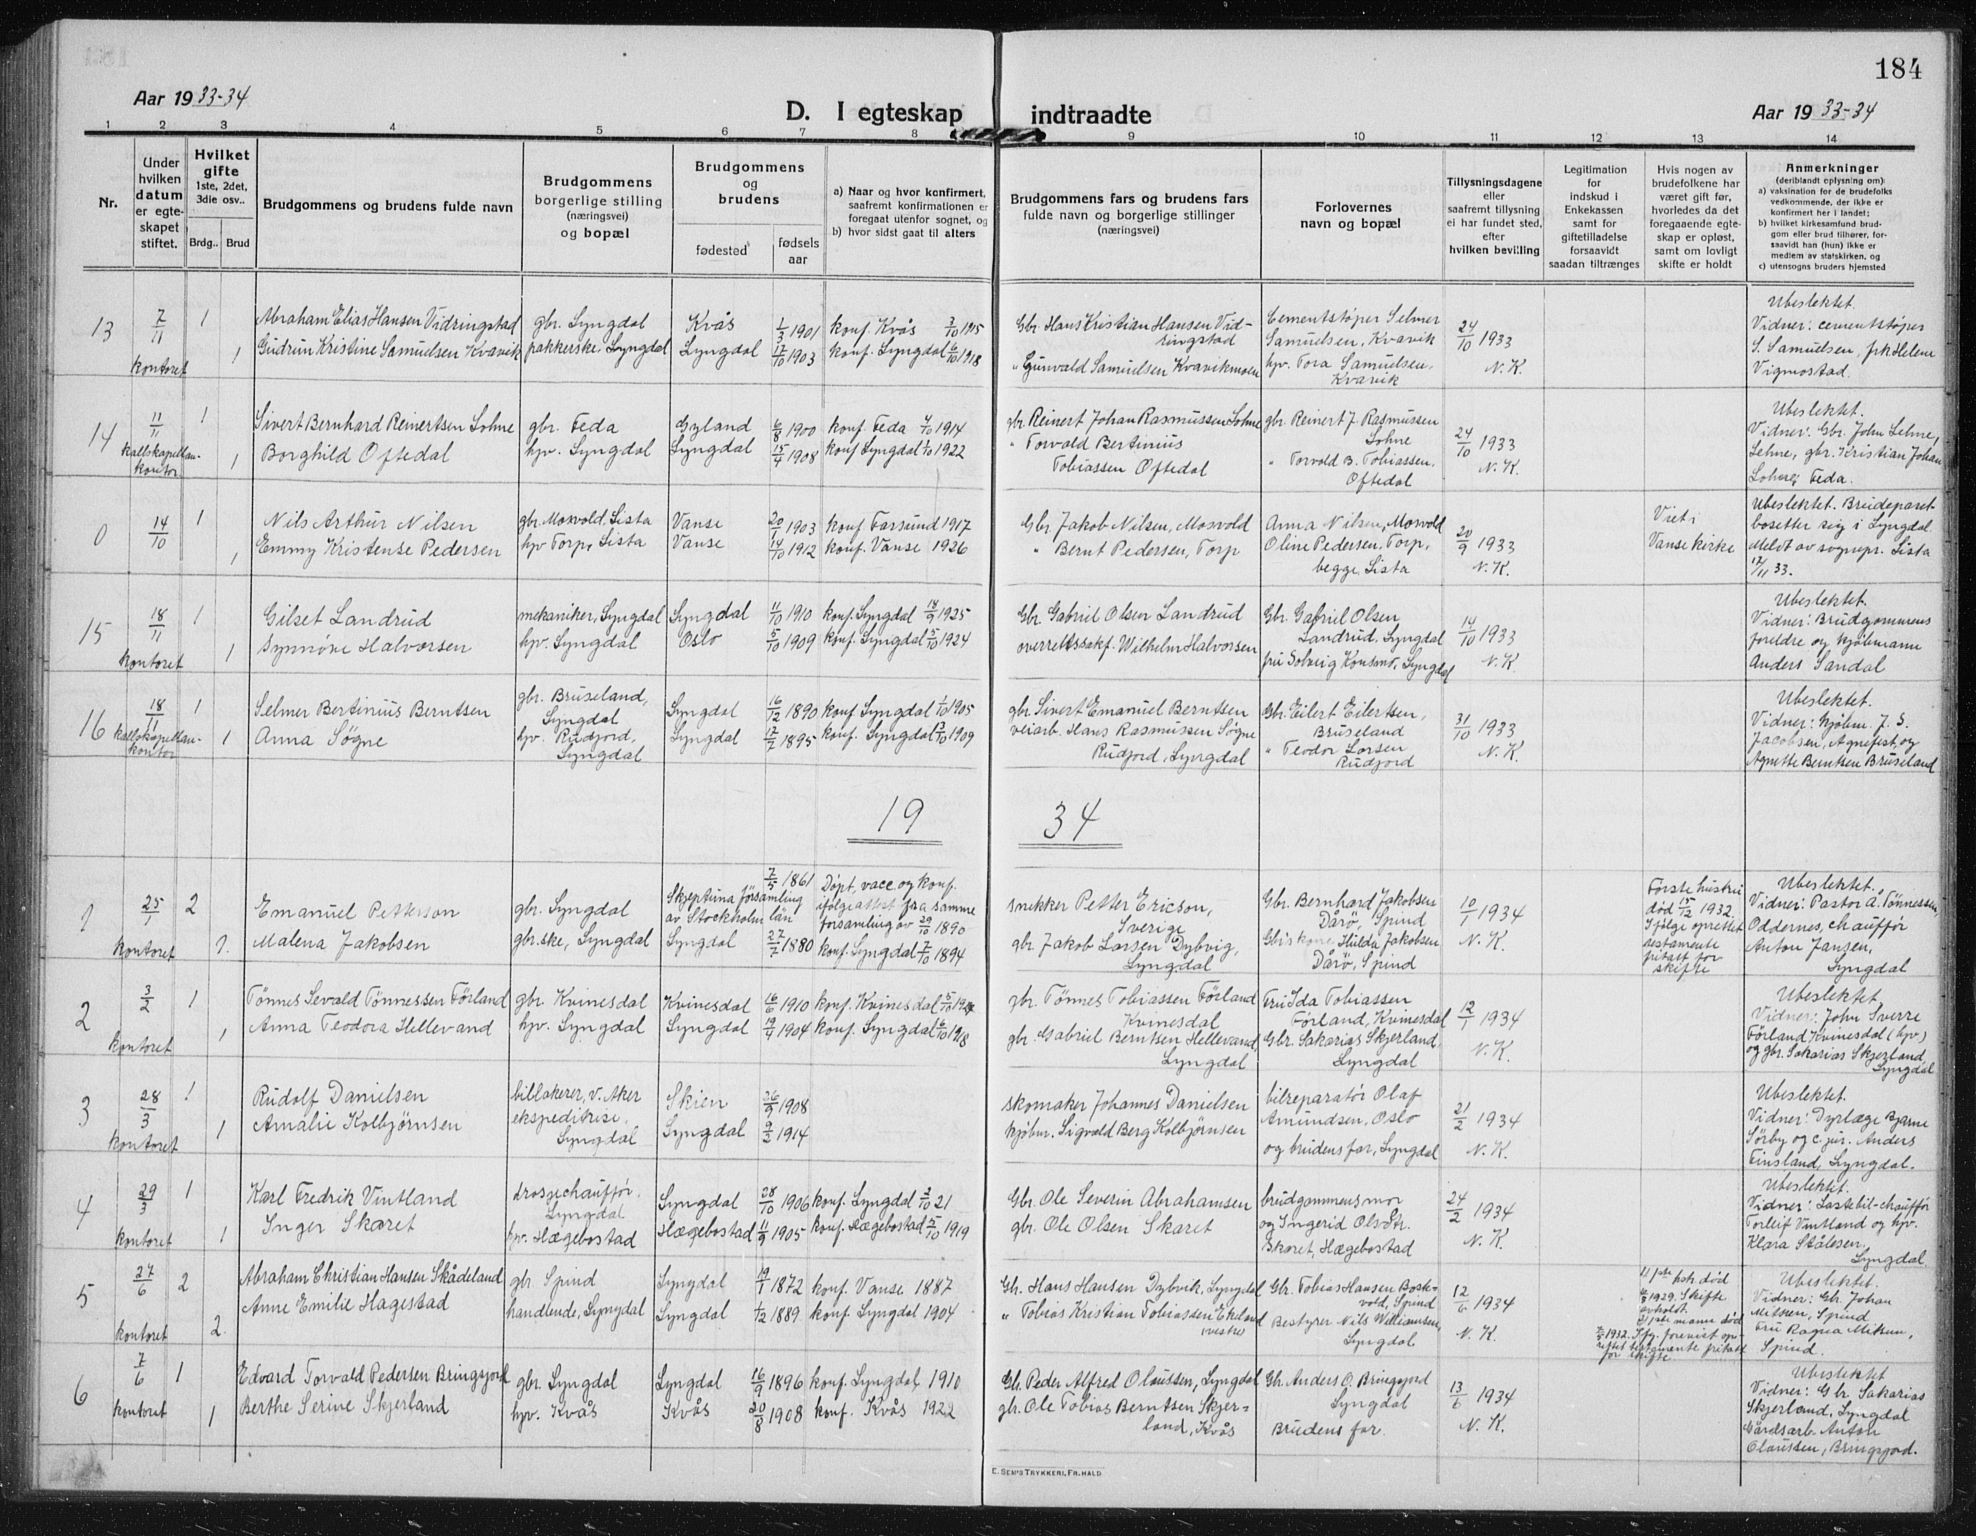 184
Aar 1933-34
D. I egteskap indtraadte
Aar 1933-34
1 2 3 4 5 6 7 8 9 10 11 12 13 14
Nr.
Under hvilken datum er egteskapet stiftet.
Hvilket gifte 1ste, 2det, 3die osv..
Brdg.. Brud
Brudgommens og brudens fulde navn
Brudgommens borgerlige stilling (næringsvei) og bopæl
Brudgommens og brudens
fødested
fødsels aar
a) Naar og hvor konfirmert, saafremt konfirmationen er foregaat utenfor sognet, og
b) hvor sidst gaat til alters
Brudgommens fars og brudens fars fulde navn og borgerlige stillinger (næringsvei)
Forlovernes navn og bopæl
Tillysningsdagene eller saafremt tillysning ei har fundet sted, efter hvilken bevilling
Legitimation for indskud i Enkekassen samt for giftetilladelse forsaavidt saadan tiltrænges
Hvis nogen av brudefolkene har været gift før, hvorledes da det foregaaende egteskap er opløst, samt om lovligt skifte er holdt
Anmerkninger (deriblandt oplysning om):
a) vaksination for de brudefolks vedkommende, der ikke er konfirmert her i landet;
b) hvilket kirkesamfund brudgom eller brud tilhører, forsaavidt han (hun) ikke er medlem av statskirken, og
c) utensogns bruders hjemsted
13 7/11 kontoret 1 1
Abraham Elias Hansen Vidringstad gbr. Lyngdal Kvås 1/3 1901 konf. Kvås 3/10 1915
Gudrun Kristine Samuelsen Kvavik pakkerske, Lyngdal Lyngdal 17/10 1903 konf. Lyngdal 6/10 1918
Gbr. Hans Kristian Hansen Vidringstad
" Gunvald Samuelsen Kvavikmoen
Cementstøper Selmer Samuelsen, Kvavik
hpv. Tora Samuelsen, Kvavik
24/10 1933 N.K.
Ubeslektet. Vidner: cementstøper S. Samuelsen, frk Helene Vigmostad.
14 11/11 kallskapellankontor 1 1
Sivert Bernhard Reinertsen Lohne gbr. Feda Gyland 6/8 1900 konf Feda 4/10 1914
Borghild Oftedal hpv. Lyngdal Lyngdal 15/4 1908 konf Lyngdal 1/10 1922
gbr. Reinert Johan Rasmussen Lohne
" Torvald Bertinius Tobiassen Oftedal
gbr. Reinert J. Rasmussen Lohne
" Torvald B. Tobiassen, Oftedal
24/10 1933 N.K.
Ubeslektet. Vidner: Gbr. John Lehne, Lehne, gbr. Kristian Johan Lohne, Feda.
0 14/10 1 1
Nils Arthur Nilsen gbr. Mosvold, Lista Vanse 20/1 1903 konf Farsund 1917
Emmy Kristense Pedersen hpv Torp, Lista Vanse 14/10 1912 konf. Vanse 1926
Gbr Jakob Nilsen, Mosvold
" Bernt Pedersen, Torp
Anna Nilsen, Mosvold
Oline Pedersen, Torp, begge Lista
20/9 1933 N.K.
Viet i Vanse kirke
Ubeslektet. Brudeparet bosetter seg i Lyngdal Meldt av sognepr. Lista 17/11 33.
15 18/11 kontoret 1 1
Gilset Landrud mekaniker, Lyngdal Lyngdal 11/10 1910 konf. Lyngdal 18/9 1925
Synnøve Halvorsen hpv. Lyngdal Oslo 5/10 1909 konf. Lyngdal 5/10 1924
Gbr. Gabriel Olsen Landrud
overrettssakf. Wilhelm Halvorsen
Gbr. Gabriel Olsen Landrud, Lyngdal
fru Solveig Konsmo, Lyngdal
14/10 1933 N.K
Ubeslektet. Vidner: Brudgommens foreldre og kjøbmann Anders Sandal
16 18/11 kallskapellankontor 1 1
Selmer Bertinius Berntsen gbr. Bruseland, Lyngdal Lyngdal 16/12 1890 konf Lyngdal 1/10 1905
Anna Søgne hpv. Rudjord, Lyngdal Lyngdal 17/2 1895 konf. Lyngdal 13/10 1909
gbr. Sivert Emanuel Berntsen
veiarb. Hans Rasmussen Søgne Rudjord, Lyngdal
Gbr. Eilert Eilertsen, Bruseland
" Teodor Larsen Rudjord
31/10 1933 N.K.
Ubeslektet. Vidner: kjøbm. J. S. Jacobsen, Agnefest, og Agnette Berntsen Bruseland
19 34
1 25/1 kontoret 2 2.
Emanuel Petterson gbr. Lyngdal Skeptuna församling av Stockholm län 7/5 1861 Døpt, vacc. og konf. ifølge attest fra samme forsamling av 29/10 1890
Malena Jakobsen gbr.ske, Lyngdal Lyngdal 27/7 1880 konf. Lyngdal 7/10 1894
snekker Petter Ericson, Sverige
gbr. Jakob Larsen Dybvig, Lyngdal
Gbr. Bernhard Jakobsen Dårø, Spind
Gbr.s kone Hilda Jakobsen Dårø, Spind
10/1 1934 N.K.
Første hustru død 15/12 1932. Ifølge oprettet testamente fritatt for skifte
Ubeslektet. Vidner: Pastor Å. Tønnessen, Oddernes, chauffør Anton Jansen, Lyngdal
2 3/2 kontoret 1 1
Tønnes Sevald Tønnessen Förland gbr Kvinesdal Kvinesdal 16/6 1910 konf. Kvinesdal 5/10 1924
Anna Teodora Hellevand hpv. Lyngdal Lyngdal 19/9 1904 konf. Lyngdal 6/10 1918
gbr. Tönnes Tobiassen Förland Kvinesdal
gbr. Gabriel Berntsen Hellevand, Lyngdal
Fru Ida Tobiassen Førland, Kvinesdal
Gbr. Sakarias Skjerland, Lyngdal
12/1 1934 N.K.
Ubeslektet. Vidner: John Sverre Förland Kvinesdal (hpv) og gbr. Sakarias Skjerland Lyngdal
3 28/3 kontoret 1 1
Rudolf Danielsen billakerer, v. Aker Skien 26/9 1908
Amalie Kolbjørnsen ekspeditrise, Lyngdal Lyngdal 9/2 1914
skomaker Johannes Danielsen
kjøbm. Sigvald Berg Kolbjørnsen
bilreparatør Olaf Amundsen, Oslo
og brudens far, Lyngdal
21/2 1934 N.K.
Ubeslektet. Vidner: Dyrlæge Bjarne Sörby og c. jur. Anders Finsland, Lyngdal.
4 29/3 kontoret 1 1
Karl Fredrik Vintland drosjechauffør, Lyngdal Lyngdal 28/10 1906 konf. Lyngdal 2/10 21
Inger Skaret hpv. Hægebostad Hægebostad 11/9 1905 konf. Hægebostad 5/10 1919
Gbr. Ole Severin Abrahamsen
gbr. Ole Olsen Skaret
brudgommens mor
og Ingerid Olsdtr. Skaret, Hægebostad
24/2 1934 N.K.
Ubeslektet. Vidner: Lastebil-chauffør Torleif Vintland og hpv. Klara Stålesen, Lyngdal
5 27/6 kontoret 2 2.
Abraham Christian Hansen Skådeland gbr Spind Lyngdal 19/1 1872 konf. Vanse 1887
Anne Emilie Hagestad handlende, Lyngdal Lyngdal 1/12 1889 konf. Lyngdal 1904
Gbr. Hans Hansen Dybvik, Lyngdal
" Tobias Kristian Tobiassen Ekeland
Gbr. Tobias Hansen Boskvold, Spind
Bestyrer Nils Williamsen, Lyngdal
12/6 1934 N.K.
1929. Skifte avholdt. 1ste mann død 1932.
Ubeslektet. Vidner: Gbr. Johan Miksen, Spind Fru Ragna Miksen, Spind.
6 7/6 kontoret 1 1
Edvard Torvald Pedersen Bringsjord gbr. Lyngdal Lyngdal 16/9 1896 konf. Lyngdal, 1910
Berthe Serine Skjerland hpv. Kvås Kvås 20/8 1908 konf. Kvås 1922
Gbr. Peder Alfred Olaussen, Lyngdal
gbr. Ole Tobias Berntsen Skjerland, Kvås
Gbr. Anders O. Bringsjord Lyngdal
Brudens far.
13/6 1934 N.K.
Ubeslektet Vidner: Gbr Sakarias Skjerland, Lyngdal Gårdsarb. Anton Olaussen, Bringsjord.
E. SEM'S TRYKKERI, FR.HALD